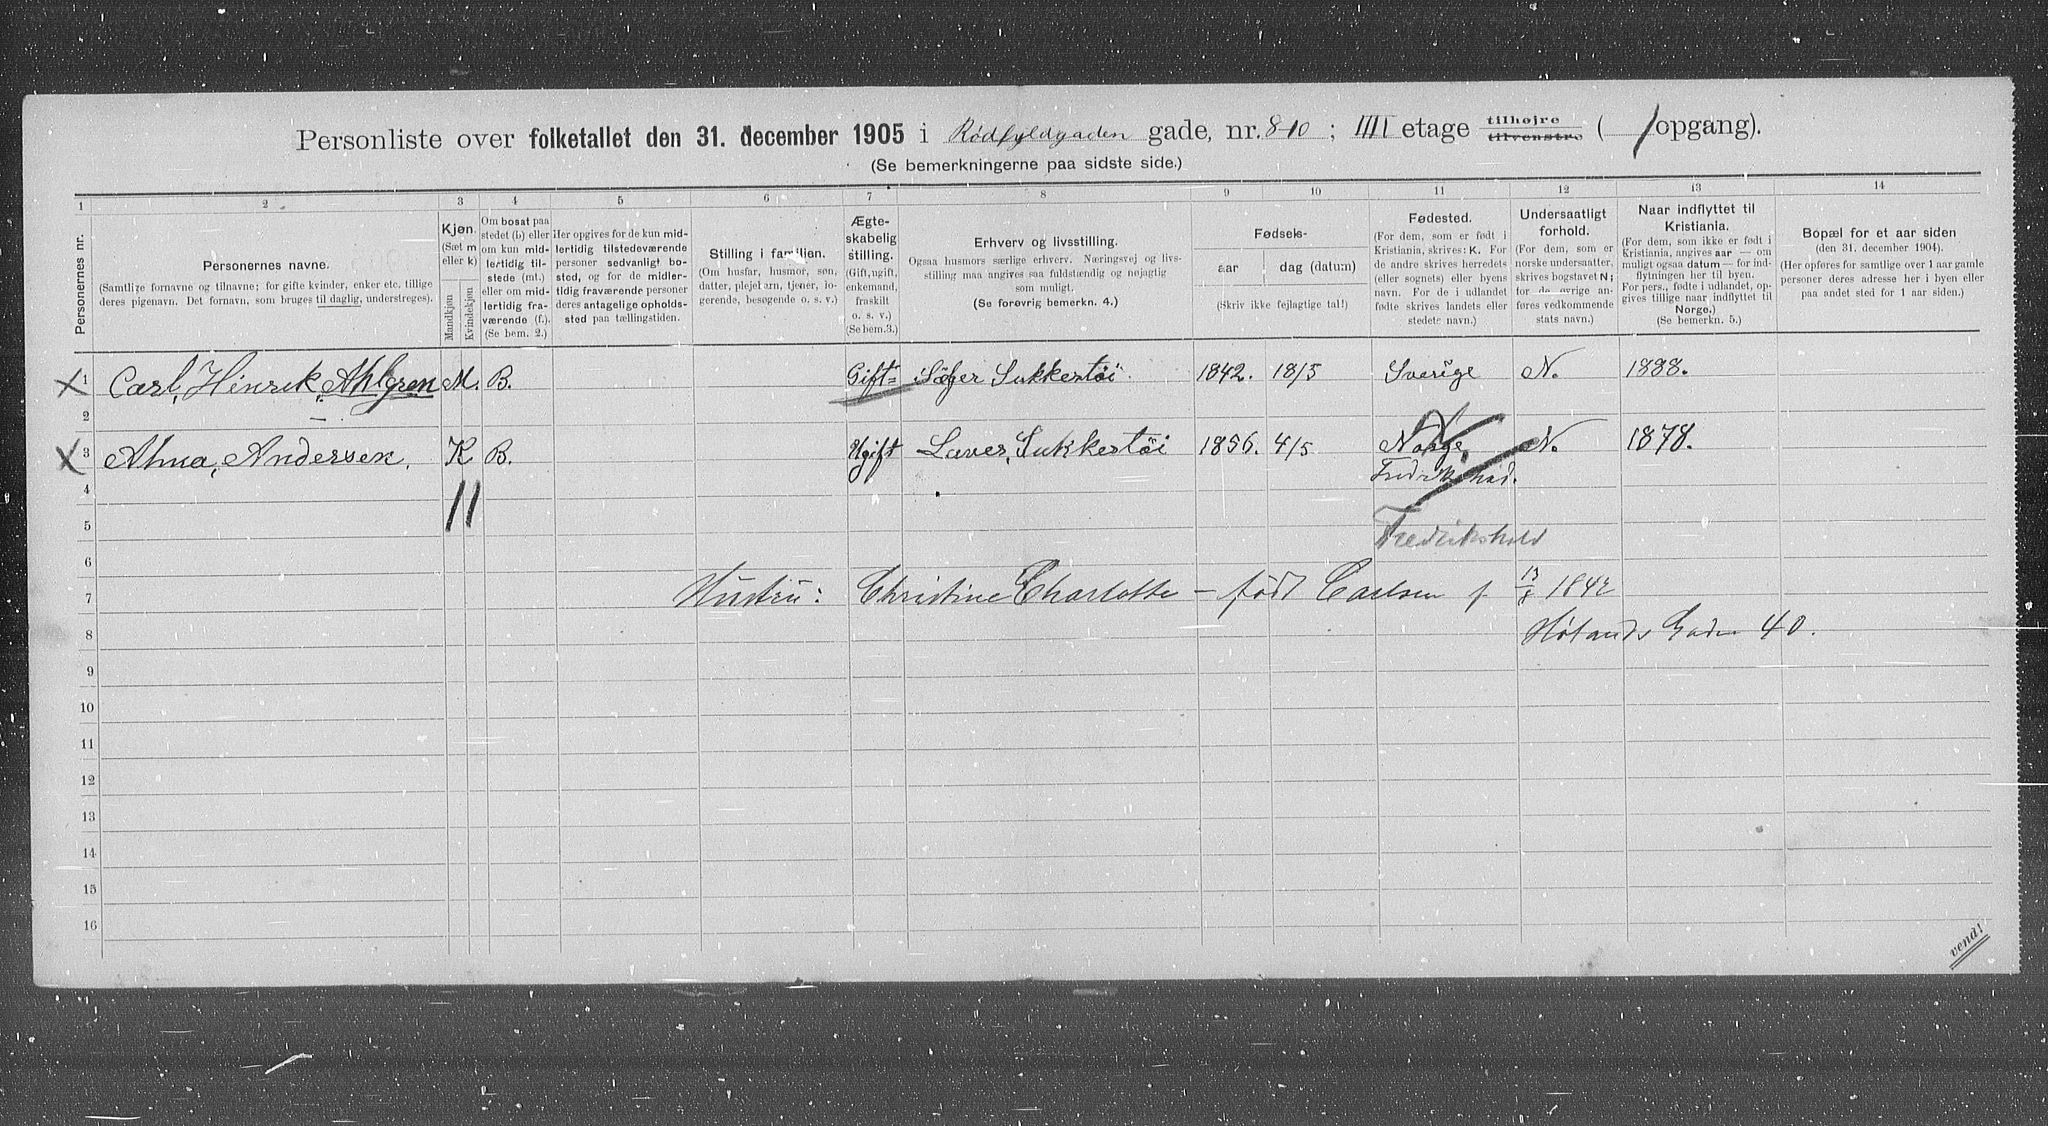 Personliste over folketallet den 31. december 1905 i Rødfyldgaden gade, nr. 8-10 ; IIII etage tilhøjre tilvenstre ( / opgang).
(Se bemerkningerne paa sidste side.)
1 2 3 4 5 6 7 8 9 10 11 12 13 14
Personernes nr.
Personernes navne.
(Samtlige fornavne og tilnavne; for gifte kvinder, enker etc. tillige deres pigenavn. Det fornavn, som bruges til daglig, understreges).
Kjøn.
(Sæt m eller k)
Mandkjøn
Kvindekjøn
Om bosat paa
stedet (b) eller
om kun mid-
lertidig til-
stede (mt.)
eller om mid-
lertidig fra-
værende (f.).
(Se bem. 2.)
Her opgives for de kun mid-
lertidig tilstedeværende
personer sedvanligt bo-
sted, og for de midler-
tidig fraværende personer
deres antagelige opholds-
sted paa tællingstiden.
Stilling i familien.
(Om husfar, husmor, søn,
datter, plejebarn, tjener, lo-
gerende, besøgende o. s. v.)
Ægte-
skabelig
stilling.
(Gift, ugift,
enkemand,
fraskilt
o. s. v.)
(Se bem. 3.)
Erhverv og livsstilling.
Ogsaa husmors særlige erhverv. Næringsvej og livs-
stilling maa angives saa fuldstændig og nøjagtig
som muligt.
(Se forøvrig bemerkn. 4.)
Fødsels-
aar
dag (datum)
(Skriv ikke fejlagtige tal!)
Fødested.
(For dem, som er født i
Kristiania, skrives: K. For
de andre skrives herredets
(eller sognets) eller byens
navn. For de i udlandet
fødte skrives landets eller
stedets navn.)
Undersaatligt
forhold.
(For dem, som er
norske undersaatter,
skrives bogstavet N;
for de øvrige an-
føres vedkommende
stats navn.)
Naar indflyttet til
Kristiania.
(For dem, som ikke er født i
Kristiania, angives aar — om
muligt ogsaa datum — for ind-
flytningen her til byen.
For pers., fødte i udlandet, op-
gives tillige naar indflyttet til
Norge.)
(Se bemerkn. 5.)
Bopæl for et aar siden
(den 31. december 1904).
(Her opføres for samtlige over 1 aar gamle
personer deres adresse her i byen eller
paa andet sted for 1 aar siden.)
1 Carl, Hinrik, Ahlgren M. B. Gift Sælger Sukkertöi 1842. 18/5 Sverige N. 1888.
2
3 Alma, Andersen. K B. Ugift Laver, Sukkertöi 1856. 4/5 Norge, N. 1878.
Fredrikstad.
4
11
5
Fredrikshald
6
7 Hustru: Christine Charlotte — född Carlsen f 13/8 1842
8 Hølands Gaden 40.
9
10
11
12
13
14
15
16
vend!